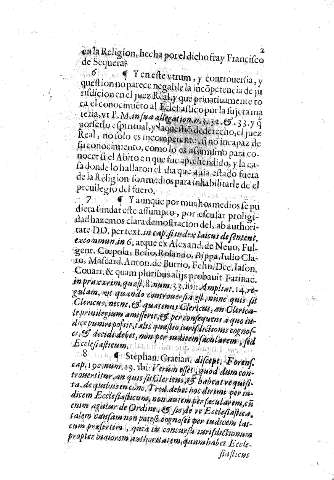 2
en la Religion, hecha por el dicho fray Francisco
de Sequera.
6 ¶ Y en este vtrum, y controuersia, y
question no parece negable la incōpetencia de ju
risdicion en el juez Real, y que priuatiuamente to
ca el conocimiēto al Eclesiastico por la
ria, vt P. M. in sua allegation. n. 31. 32. & 33. y q̄
por ser lo espiritual, y de derecho, el juez
Real, no solo es incompetente, sino incapaz de
su conocimiento, como lo es assimismo para co-
nocer si el Abito en que fue aprehendido, y la ca-
sa donde lo hallaron el dia que auia estado fuera
de la Religion son medios para inhabilitarle de el
preuilegio del fuero.
7 ¶ Y aunque por muchos medios se pu
diera fundar este assumpto, por escusar prolixi-
dad hazemos clara demostracion del, ab authori-
tate DD. per text. in cap. si iudex laicus de sentent.
excommun. in 6, atque ex Alexand. de Neuo, Ful-
gent. Coepola, Beito, Rolando, Aippa, Iulio Cla-
ro, Mascard. Anton. de Burrio, Felin, Dec. Iason,
Couarr. & quam pluribus alijs probauit Farinac.
in praxi crim. quæst. 8. num. 33. ibi: Ampliat. 14. re-
gulam, vt quando controuersia est, inue quis sit
Clericus, necne, & quatenus Clericus, an Clerica-
le priuilegium amiserit, & per consequens a quo iu-
dice puniri possit, talis quæstio iurisdictionis cognos-
ci, & decidi debet, non per iudicem sæcularem, sed
Ecclesiasticum.
8 ¶ Stephan. Gratian. discept. Forens.
cap. 190. num. 29. ibi: Verùm est; quod dum con-
trouertitur, an quis sit Clericus, & habeat requisi-
ta, de quibus in conc. Trid. debet hoc dirimi per iu-
dicem Ecclesiasticum, non autem per sæcularem, cū
enim agitur de Ordine, & sic de re Ecclesiastica,
talem causam non potest cognosci per iudicem lai-
cum præsertim, quia in concursu iurisdictionum
propter maiorem authoritatem, quam habet Eccle-
siasticus